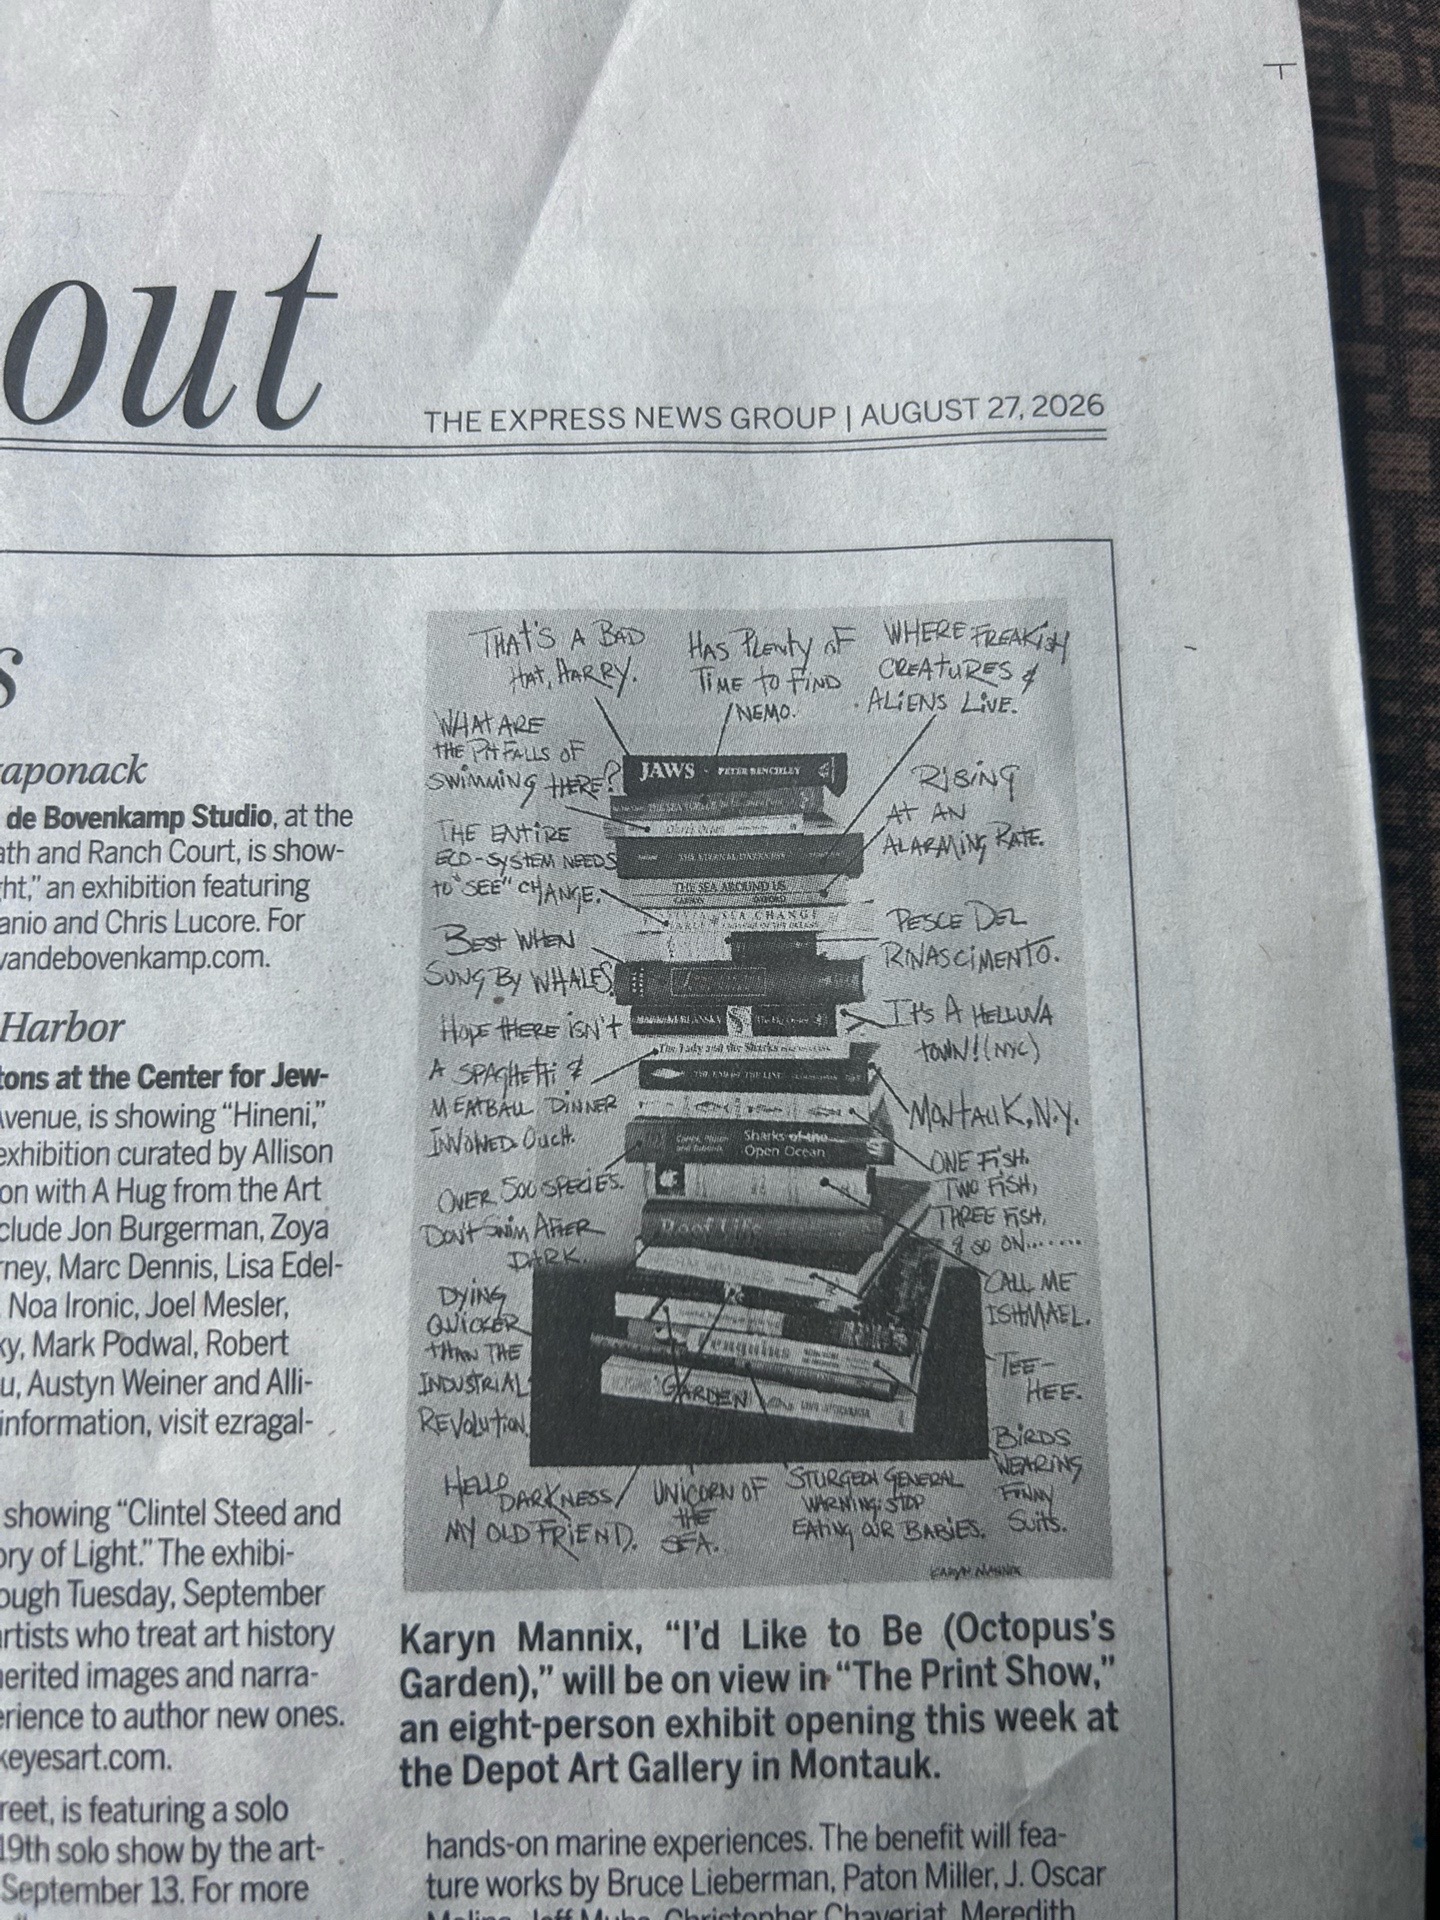 out
THE EXPRESS NEWS GROUP | AUGUST 27, 2026
s
aponack
de Bovenkamp Studio, at the
ath and Ranch Court, is show-
ht,” an exhibition featuring
anio and Chris Lucore. For
vandebovenkamp.com.
Harbor
tons at the Center for Jew-
Avenue, is showing “Hineni,”
exhibition curated by Allison
on with A Hug from the Art
clude Jon Burgerman, Zoya
rney, Marc Dennis, Lisa Edel-
Noa Ironic, Joel Mesler,
ky, Mark Podwal, Robert
u, Austyn Weiner and Alli-
information, visit ezragal-
showing “Clintel Steed and
ory of Light.” The exhibi-
ough Tuesday, September
artists who treat art history
herited images and narra-
erience to author new ones.
keyesart.com.
reet, is featuring a solo
19th solo show by the art-
September 13. For more
THAT'S A BAD
HAT, HARRY.
HAS PLENTY OF
TIME TO FIND
NEMO.
WHERE FREAKISH
CREATURES &
ALIENS LIVE.
WHAT ARE
THE PITFALLS OF
SWIMMING HERE?
JAWS · PETER BENCHLEY
RISING
AT AN
ALARMING RATE.
THE ENTIRE
ECO-SYSTEM NEEDS
TO "SEE" CHANGE.
THE ETERNAL DARKNESS
THE SEA AROUND US
CARSON OXFORD
SEA CHANGE
PESCE DEL
RINASCIMENTO.
BEST WHEN
SUNG BY WHALES.
IT'S A HELLUVA
TOWN! (NYC)
HOPE THERE ISN'T
A SPAGHETTI &
MEATBALL DINNER
INVOLVED. OUCH.
The Lady and the Sharks
MONTAUK, N.Y.
Sharks of the
Open Ocean
ONE FISH,
TWO FISH,
THREE FISH,
& SO ON.......
OVER 500 SPECIES.
DON'T SWIM AFTER
DARK.
CALL ME
ISHMAEL.
DYING
QUICKER
THAN THE
INDUSTRIAL
REVOLUTION.
TEE-
HEE.
GARDEN
BIRDS
WEARING
FUNNY
SUITS.
HELLO
DARKNESS
MY OLD FRIEND.
UNICORN OF
THE
SEA.
STURGEON GENERAL
WARNING: STOP
EATING OUR BABIES.
KARYN MANNIX
Karyn Mannix, “I’d Like to Be (Octopus’s
Garden),” will be on view in “The Print Show,”
an eight-person exhibit opening this week at
the Depot Art Gallery in Montauk.
hands-on marine experiences. The benefit will fea-
ture works by Bruce Lieberman, Paton Miller, J. Oscar
Christopher Chaveriat, Meredith